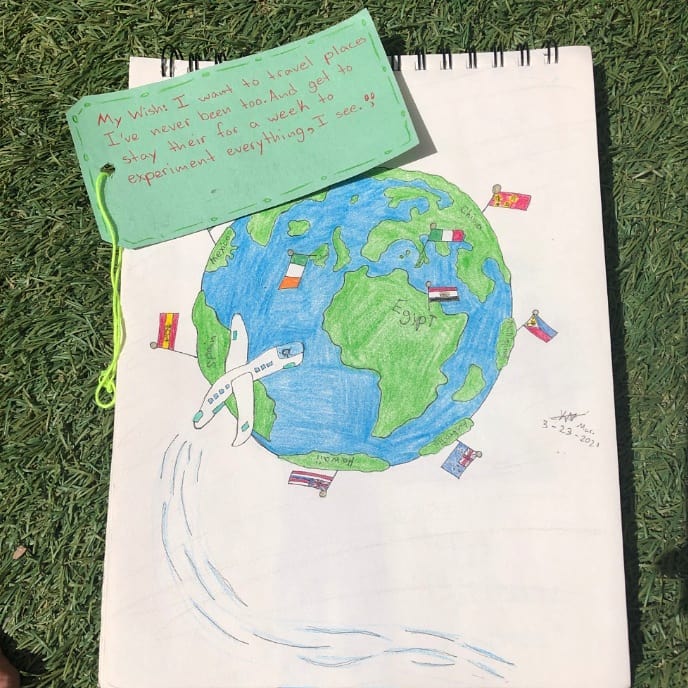 My Wish: I want to travel places
I've never been too. And get to
stay their for a week to
experiment everything, I see.
China
Mexico
Egipt
Spain
Hawaii
3-23-2021